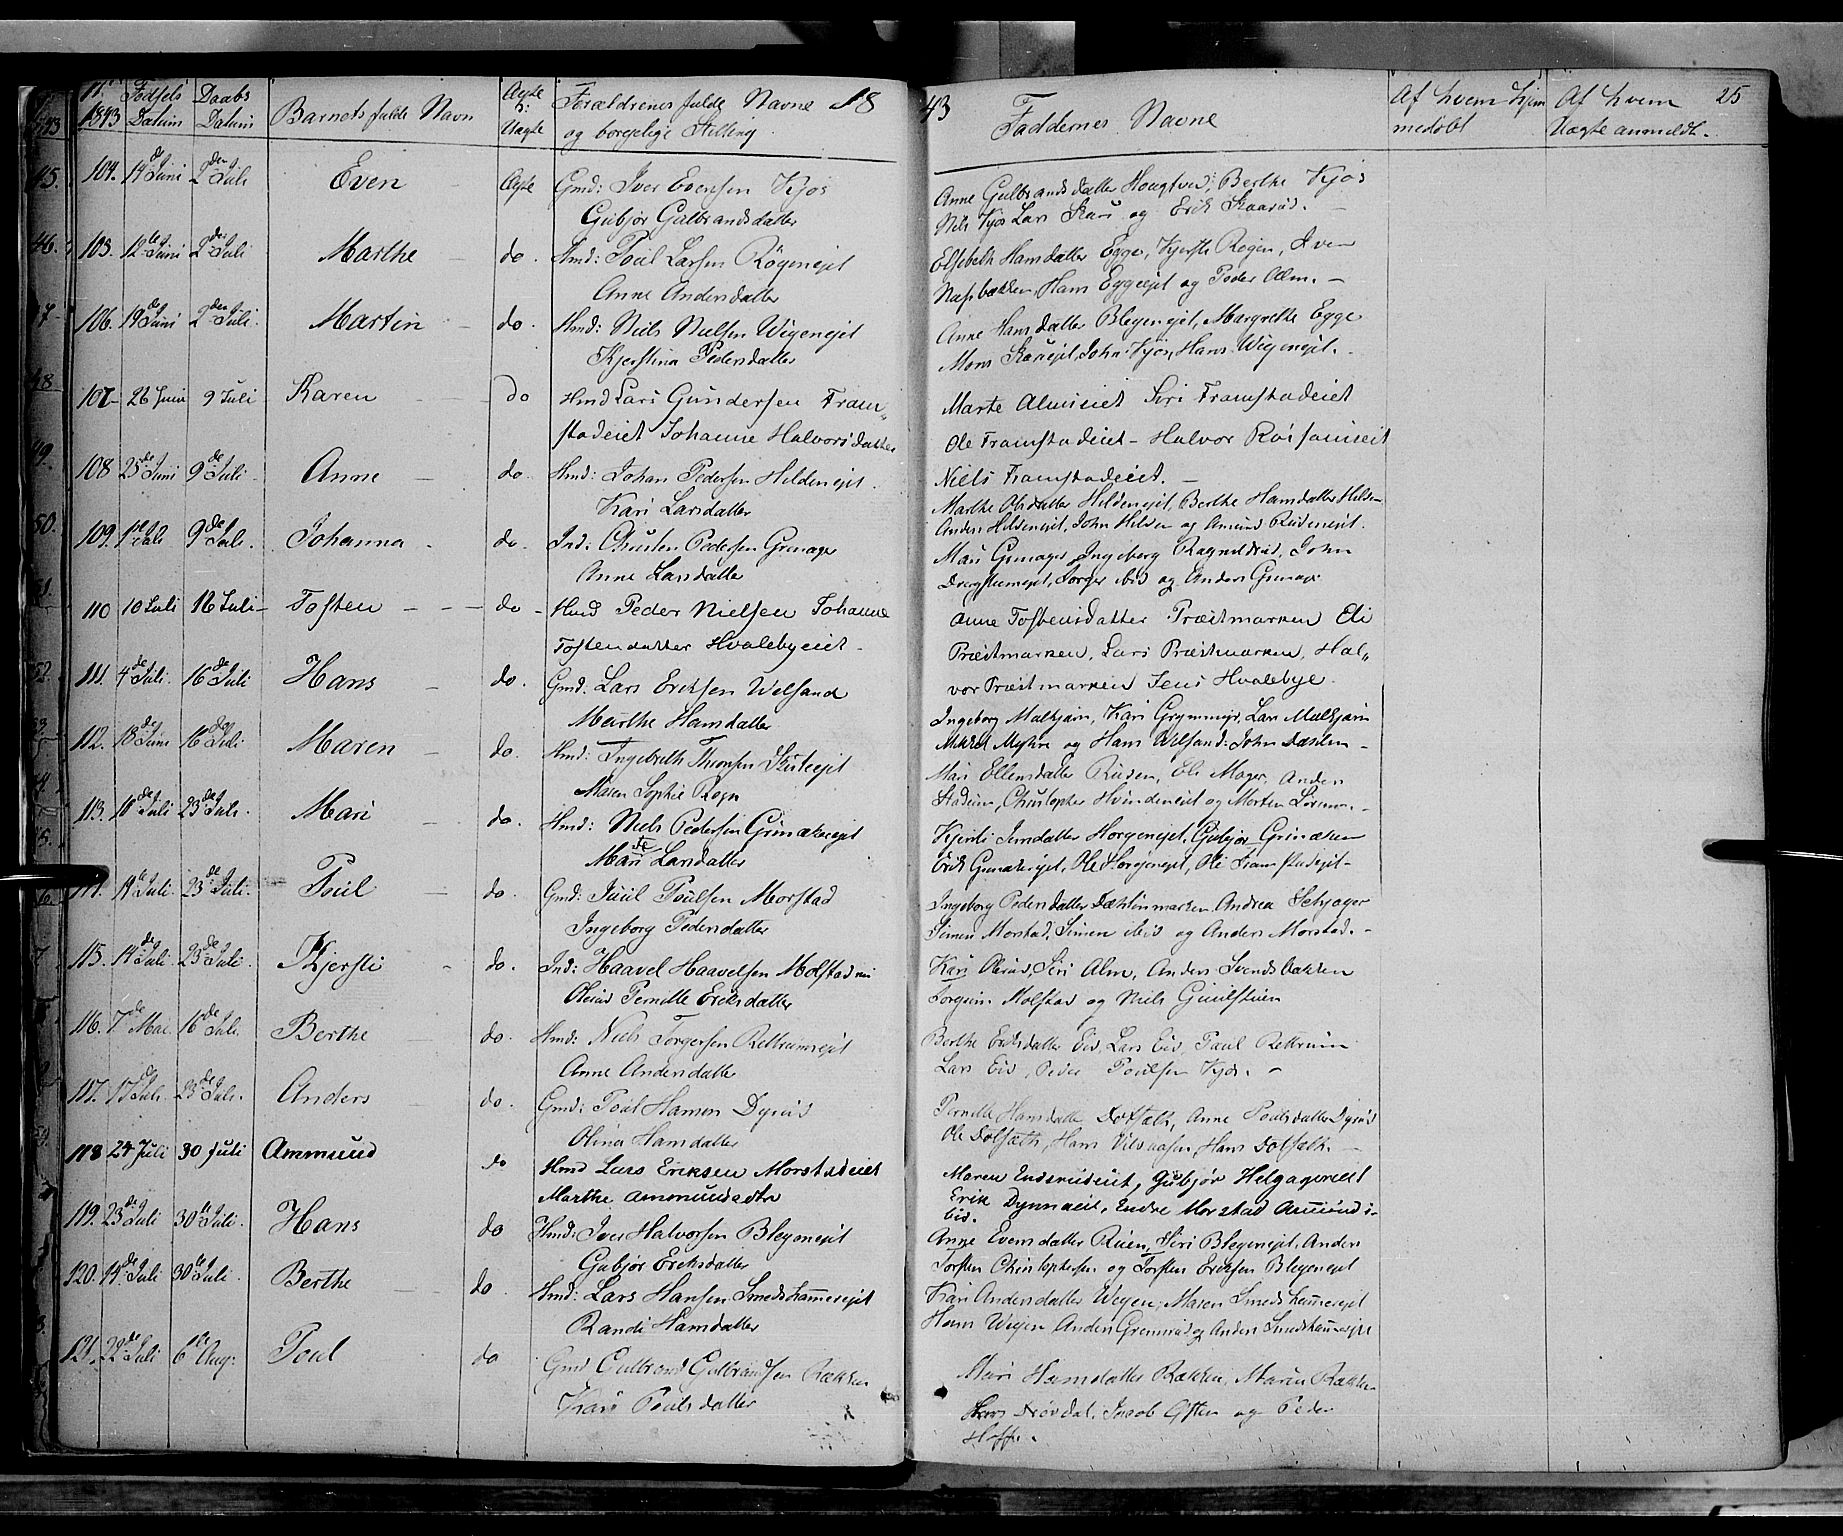 No 1843 Fødsels Datum Daabs Datum Barnets fulde Navn Ægte l: Uægte Forældrenes fulde Navne og borgelige Stilling 18
43 Faddernes Navne Af hvem hjemmedøbt Af hvem Uægte anmeldt. 25
104. 14de Juni 2den Juli Even Ægte Gmd: Iver Evensen Kjos
Gubjør Gulbrandsdatter
Anne Gulbrandsdatter Hougtved, Berthe Kjos
Nils Kjos Lars Skari og Erik Skaarud.
105. 12te Juni 2den Juli Marthe do. Hmd: Poul Larsen Røgenejet
Anne Andersdatter
Elsebeth Hansdatter Egge, Kjersti Rogen, Iven
Næssbakken, Hans Eggeejet og Peder Alm.
106. 19de Juni 2den Juli. Martin do. Hmd: Niels Nielsen Wigenejet
Kjerstina Pedersdatter
Anne Hansdatter Blegenejet, Margrethe Egge
Mons Skariejet, John Kjos, Hans Wigenejet.
107 26 Juni 9 Juli Karen do Hmd Lars Gundersen Fram„
stadeiet Johanne Halvorsdatter
Marte Almseiet Siri Framstadeiet
Ole Framstadeiet Halvor
Niels Framstadeiet.
108 25de Juni 9de Juli Anne do. Hmd: Johan Pedersen Hildenejet.
Kari Larsdatter
Marthe Olsdatter Hildenejet, Berthe Hansdatter Hilden
Anders Hildenejet, John Hilden og Amund Rudenejet.
109. 1ste Juli 9de Juli. Johanna do. Ind: Christen Pedersen Grinager
Anne Larsdatter
Mari Grinager, Ingeborg Ragnildrud, John
Torger ibid og Anders Grinager
110 10 Juli 16 Juli Tosten do Hmd Peder Nielsen Johanne
Tostendatter Hvalebyeiet
Anne Tostensdatter Præstmarken Eli
Præstmarken, Lars Præstmarken, Hal„
vor Præstmarken Jens Hvalebye.
111. 4de Juli. 16de Juli Hans do. Gmd. Lars Eriksen Welsand
Marthe Hansdatter
Ingeborg Molkjærn, Kari Lars Molkjærn
Mikkel Myhre og Hans Velsand: John Dæhlen
112. 18de Juni 16de Juli Maren do. Hmd: Ingebreth Thronsen
Maren Sophie Rogn
Mari Ellensdatter Ruden, Eli Mager, Anders
Stadeim, Christopher Hvindeneiet og Morten
113. 10de Juli 23de Juli. Mari do. Hmd: Niels Pedersen Grinakerejet
Mari Larsdatter
Kjersti Jensdatter Horgenejet, Gubjør Grinaker
Erik Grinakerejet, Ole Horgenejet, Ole Framstadejet
114. 14de Juli. 23de Juli. Poul do. Gmd: Juul Poulsen Morstad
Ingeborg Pedersdatter
Ingeborg Pedersdatter Dæhlinmarken, Andrea Schjager
Simen Morstad, Simen ibid og Anders Morstad.
115. 14de Juli 23de Juli. Kjersti do. Ind: Haavel Haavelsen Molstad
Olerud Pernille Eriksdatter
Kari Olerud, Siri Alm, Anders Svendsbakken
Torgrim Molstad og Niels
116. 7de Mai. 16de Juli. Berthe do. Hmd: Niels Torgersen Rekstrumsejet
Anne Andersdatter
Berthe Eriksdatter Eid, Lars Eid, Paul
Lars Eid, Peder Poulsen Kjos.
117. 17de Juli. 23de Juli. Anders do. Gmd: Poul Hansen Dynnes
Olina Hansdatter
Pernille Hansdatter Dolsæth, Anne Poulsdatter
Ole Dolsæth, Hans Hans Dolsæth.
118 24 Juli 30 Juli Ammund do Hmd Lars Eriksen Morstadeiet
Marthe Ammundsdtr
Maren Endsrudeiet, Gubjør Helgagereiet
Erik Dynnaeiet, Endre Morstad Amunds
Eid.
119. 23de Juli 30te Juli. Hans do Hmd: Iver Halvorsen Blegenejet
Gubjør Eriksdatter
Anne Evensdatter Ruen, Siri Blegenejet, Anders
Torsten Christophersen og Torsten Eriksen Blegenejet
120. 14de Juli 30te Juli. Berthe do. Hmd: Lars Hansen Smedshammerejet
Randi Hansdatter
Kari Andersdatter Wegen, Maren Smedshammerejet
Hans Wegen Anders Grimsrud og Anders Smedshammerejet
121. 22de Juli 6te Aug: Poul do Gmd Gulbrand Gulbrandsen Rækken
Kari Poulsdatter
Mari Hansdatter Rækken, Maren Rækken
Lars Jacob og Peder
Hoff.